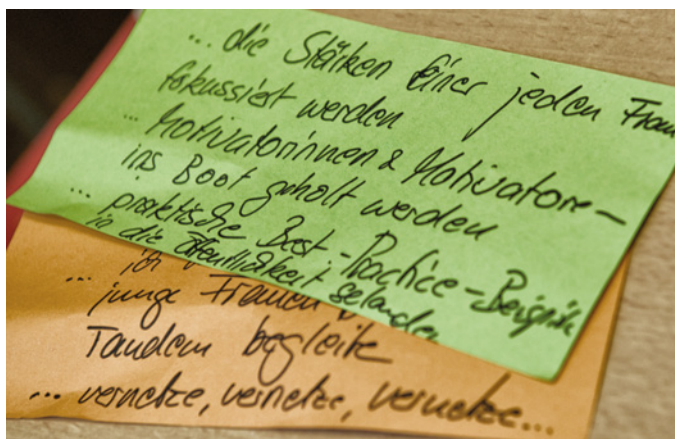 ... die Stärken Einer jeden Frau
fokussiert werden
... Motivatorinnen & Motivatore-
ins Boot geholt werden
... praktische Best-Practice-Beispiele
in die Öffentlichkeit
... ich
junge Frauen
Tandem begleite
... vernetze, vernetze, vernetze...